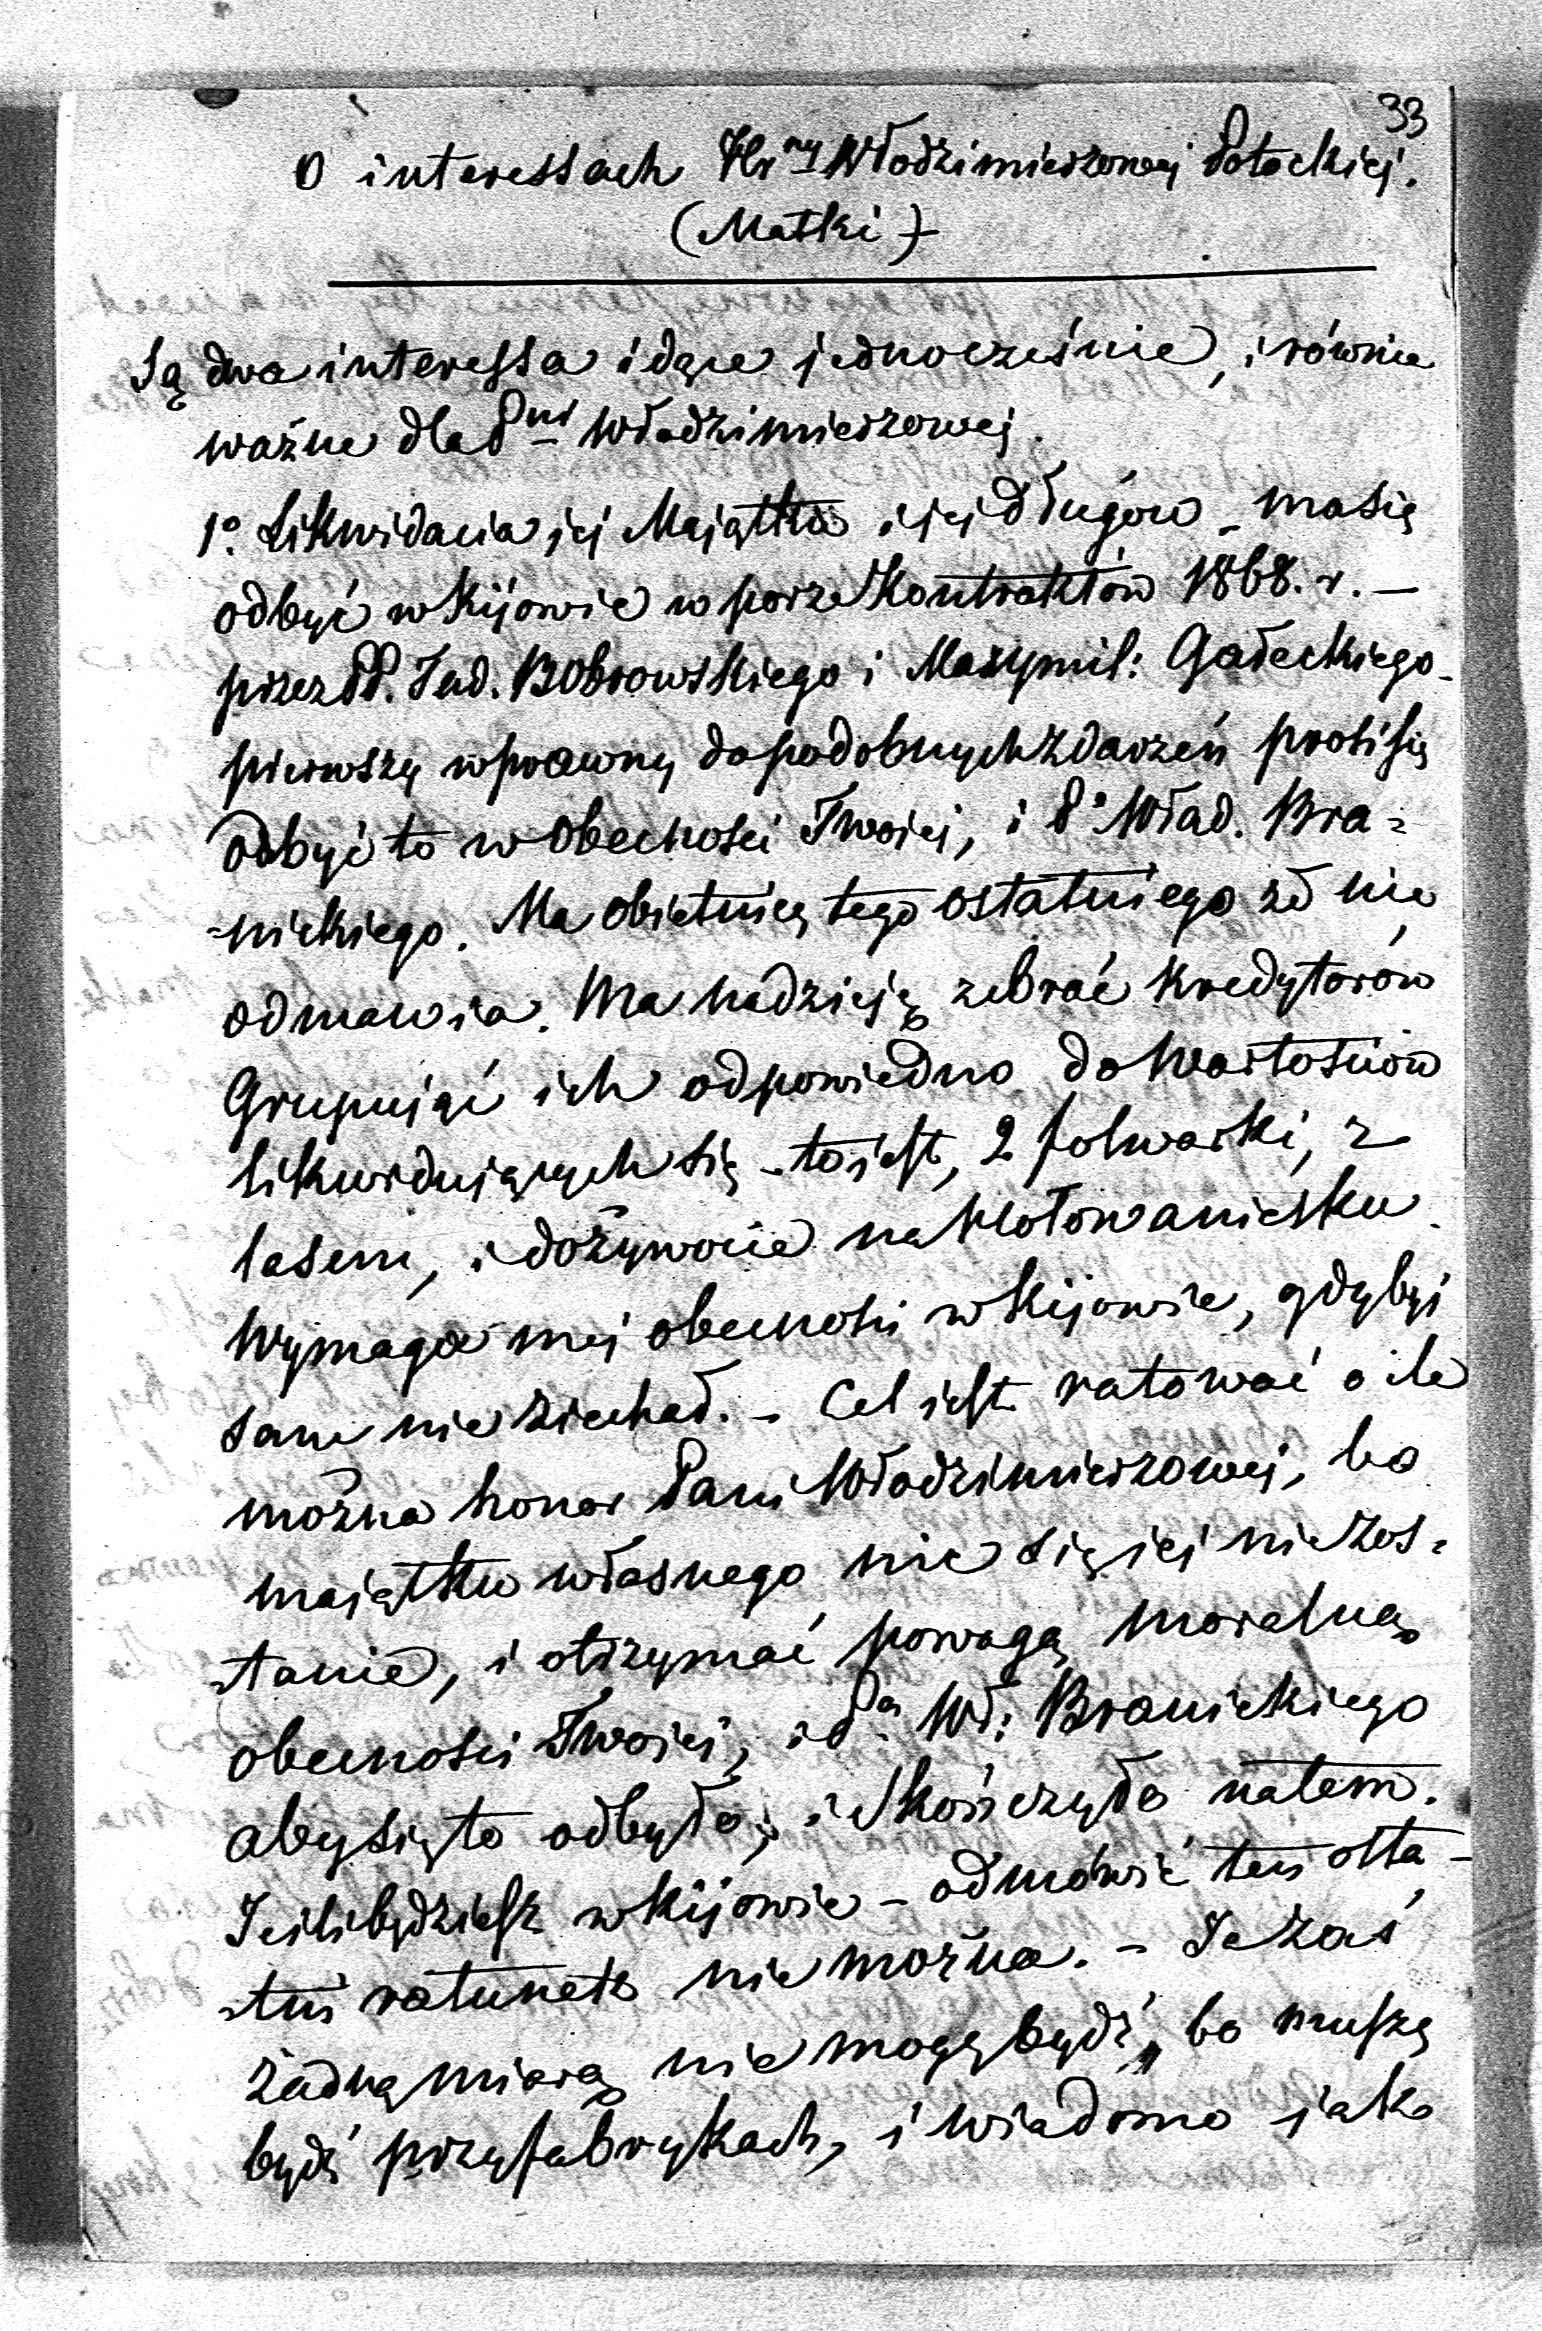 33
O interessach Hr<sup>ny</sup> Włodzimierzowej Potockiej.
(Matki)
Są dwa interessa idące jednocześnie, i równie
ważne dla P<sup>ni</sup> Włodzimierzowej.
1° Likwidacia jej Majątku i jej długów – ma się
odbyć w Kijowie w porze Kontraktów 1868. r. –
przez PP. Tad. Bobrowskiego i Maxymil: Gałeckiego –
pierwszy wprawny do podobnych zdarzeń prosi się
odbyć to w obecności Twojej, i P<sup>a</sup> Wład. Bra=
=nickiego. Ma obietnicę tego ostatniego że nie
odmawia. Ma nadzieję zebrać kredytorów
Grupując ich odpowiedno do wartościów
likwidujących się – to jest, 2 folwarki, z
lasem, i dożywocie na Mołowaniesku
Wymaga mej obecności w Kijowie, gdybyś
sam nie ziechał. – Cel jest ratować o ile
można honor Pani Włodzimierzowej, bo
majątku własnego nic się jej nie zos=
tanie, i otrzymać powagą moralną
obecności Twojej, i P<sup>a</sup> Wł: Branickiego
aby się to odbyło, i skończyło na tem.
Jeśli będziesz w Kijowie – odmówić ten osta-
tni ratunek nie można. – Ja zaś
żadną miarą nie mogę bydź, bo muszę
bydź przy fabrykach, i wiadomo jak